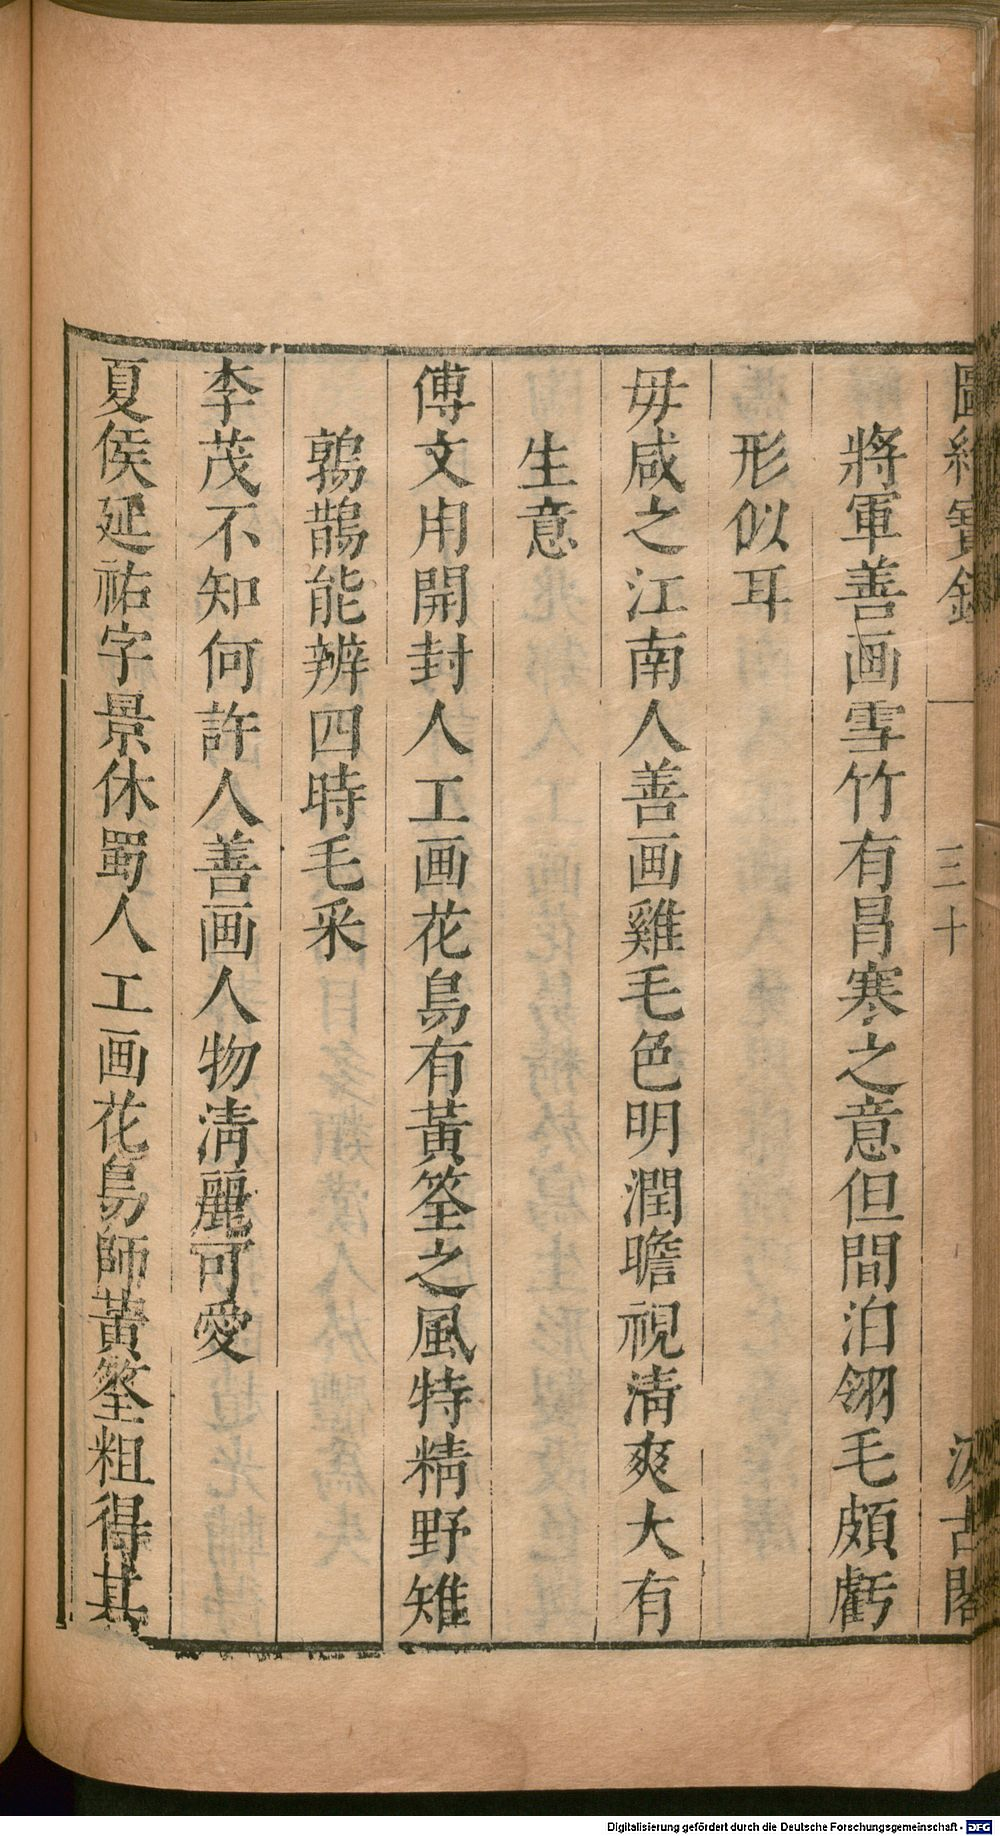 圖繪寶鑑 三十 汲古閣
將軍善画雪竹有冒寒之意但間泊翎毛頗虧
形似耳
毋咸之江南人善画雞毛色明潤瞻視清爽大有
生意
傅文用開封人工画花鳥有黃筌之風特精野雉
鶉鵲能辨四時毛采
李茂不知何許人善画人物清麗可愛
夏侯延祐字景休蜀人工画花鳥師黃筌粗得其
Digitalisierung gefördert durch die Deutsche Forschungsgemeinschaft - DFG